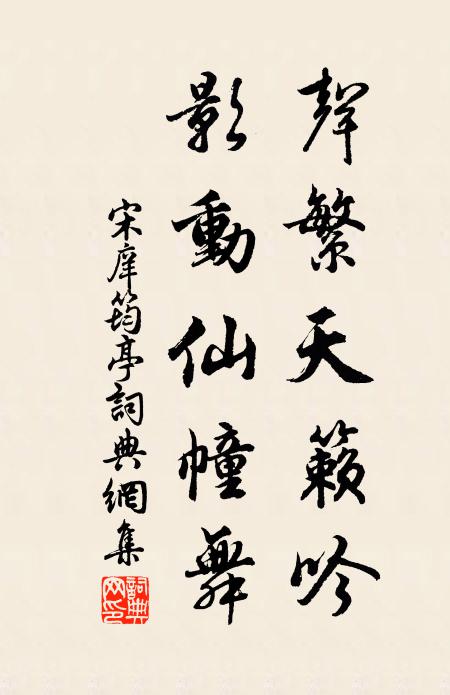 聲繁天籟吟
影動仙幢舞
宋庠筠亭詞典網集
詞典網印